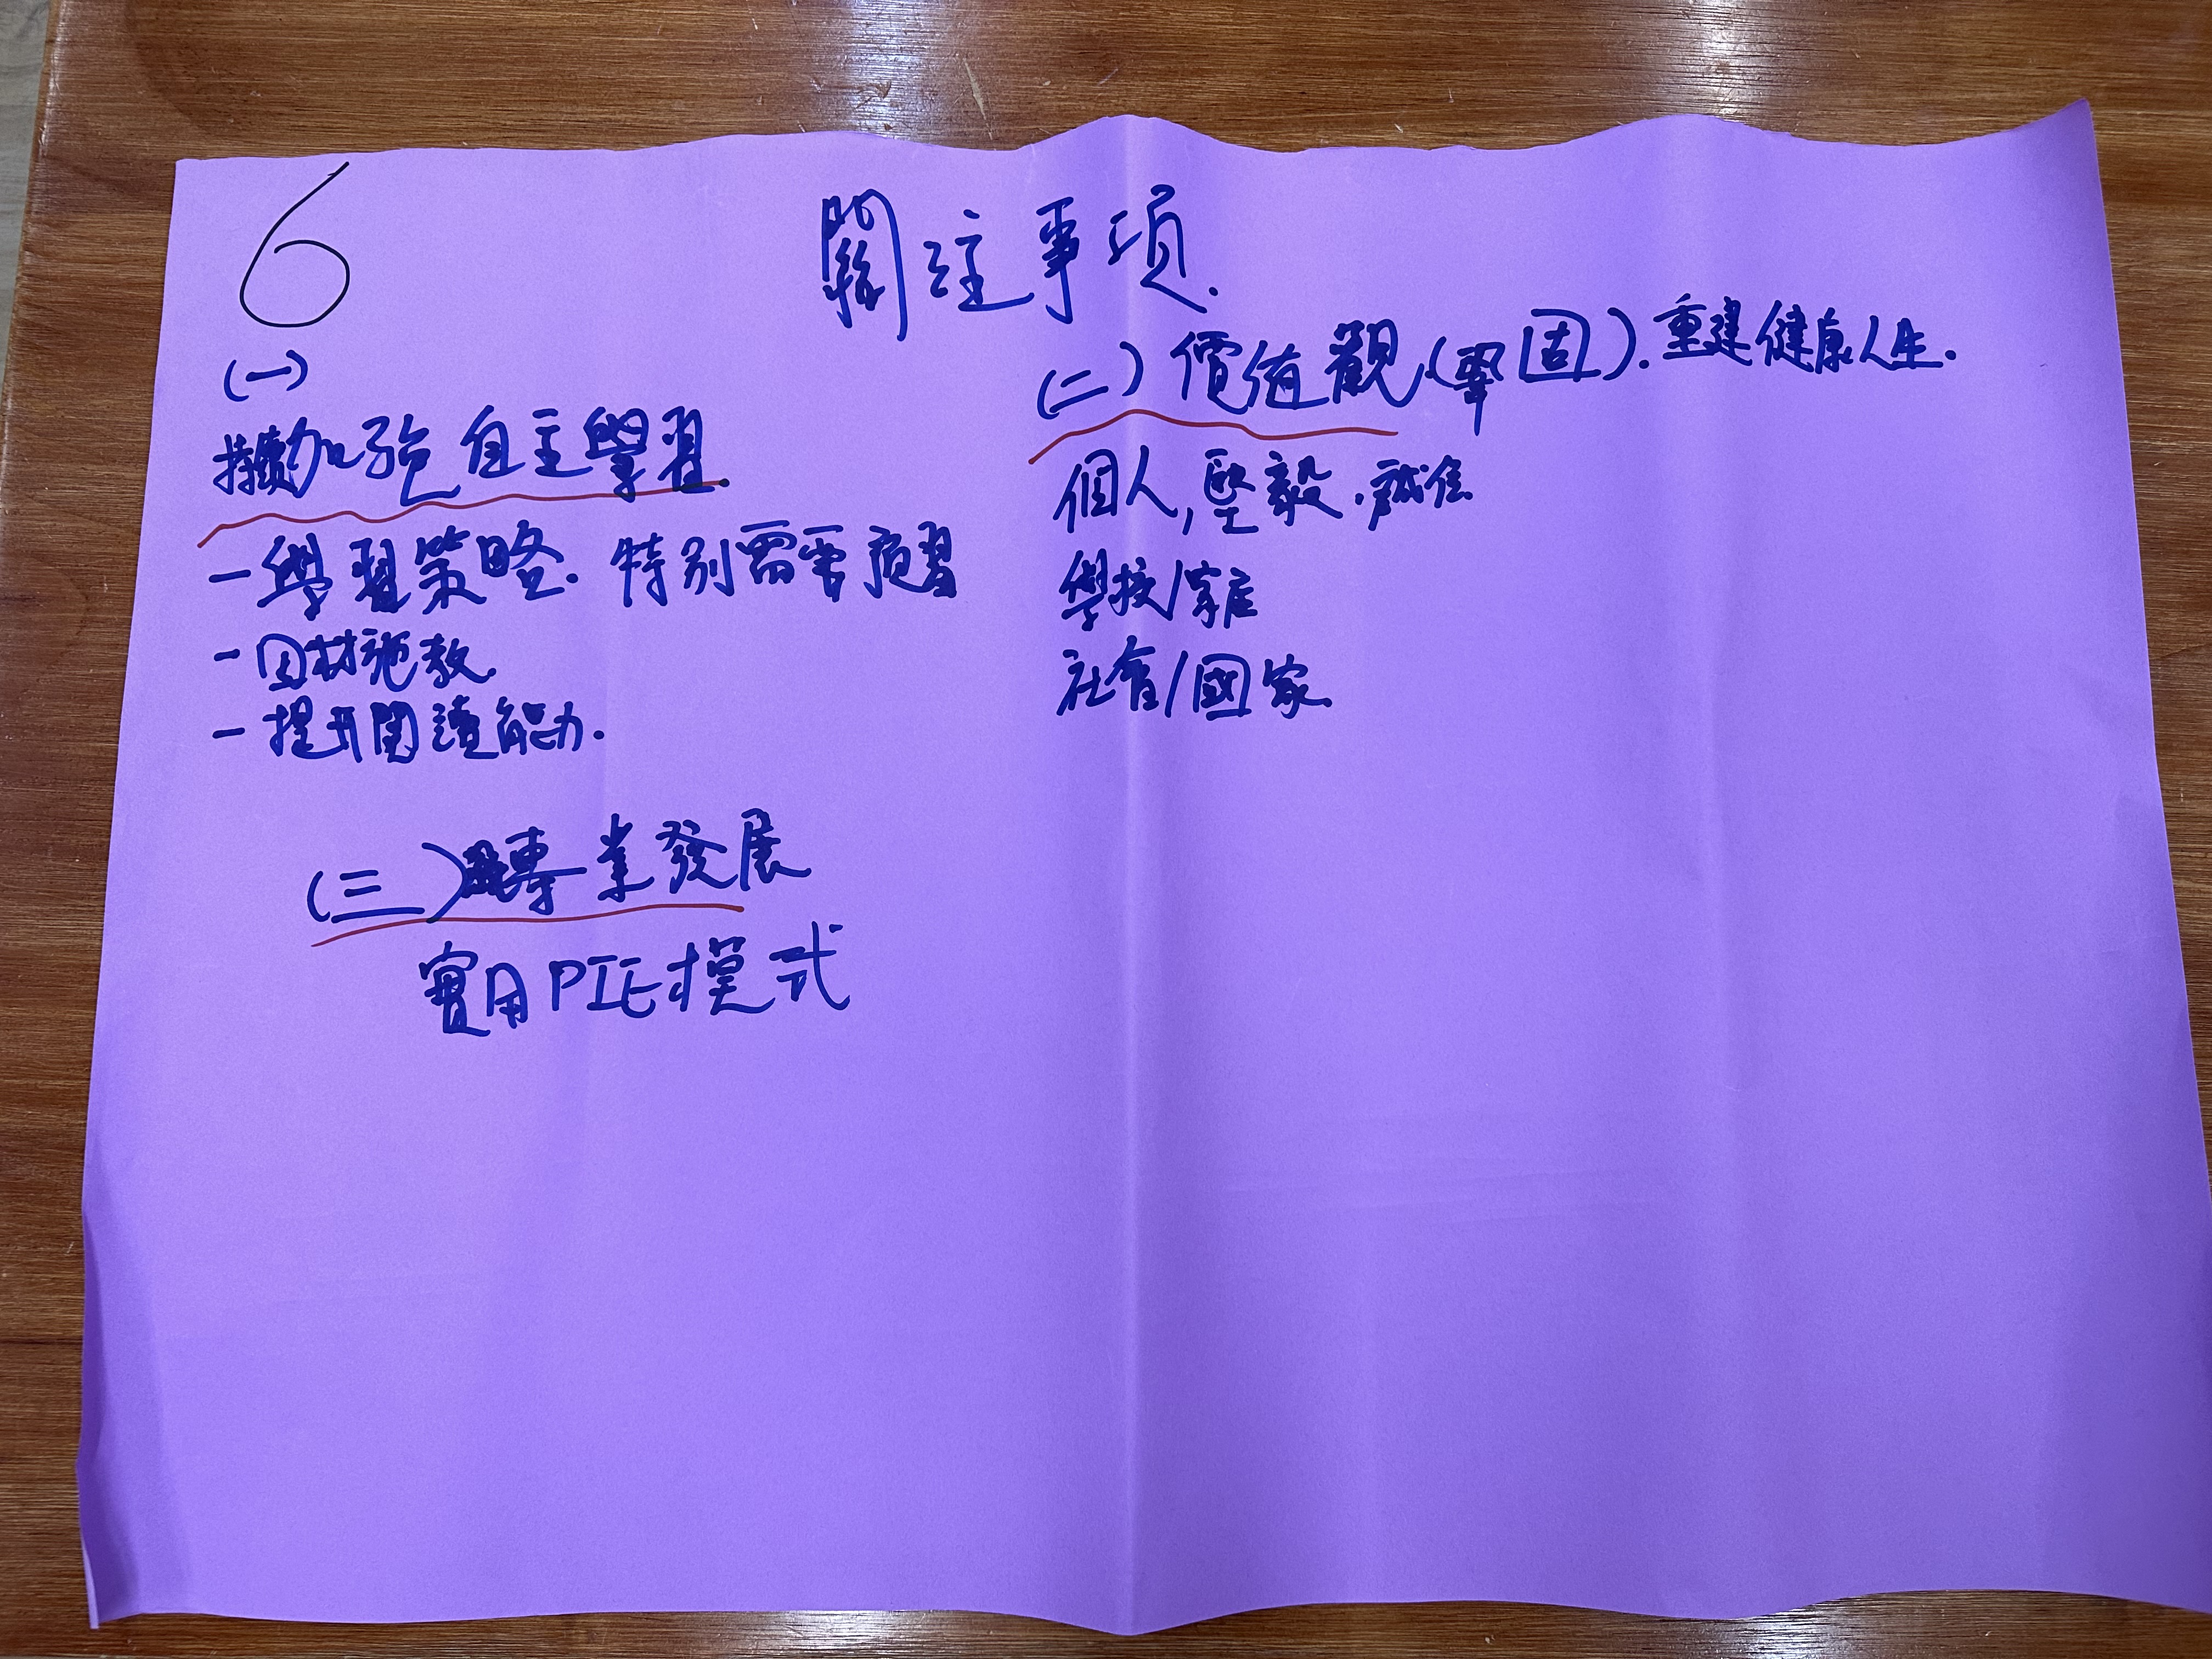 6
關注事項.
(一)
持續加強自主學習.
- 學習策略. 特別需要預習
- 因材施教.
- 提升閱讀能力.
(二) 價值觀 (鞏固). 重建健康人生.
個人, 堅毅. 誠信
學校/家庭
社會/國家.
(三) 專業發展
實用PIE模式